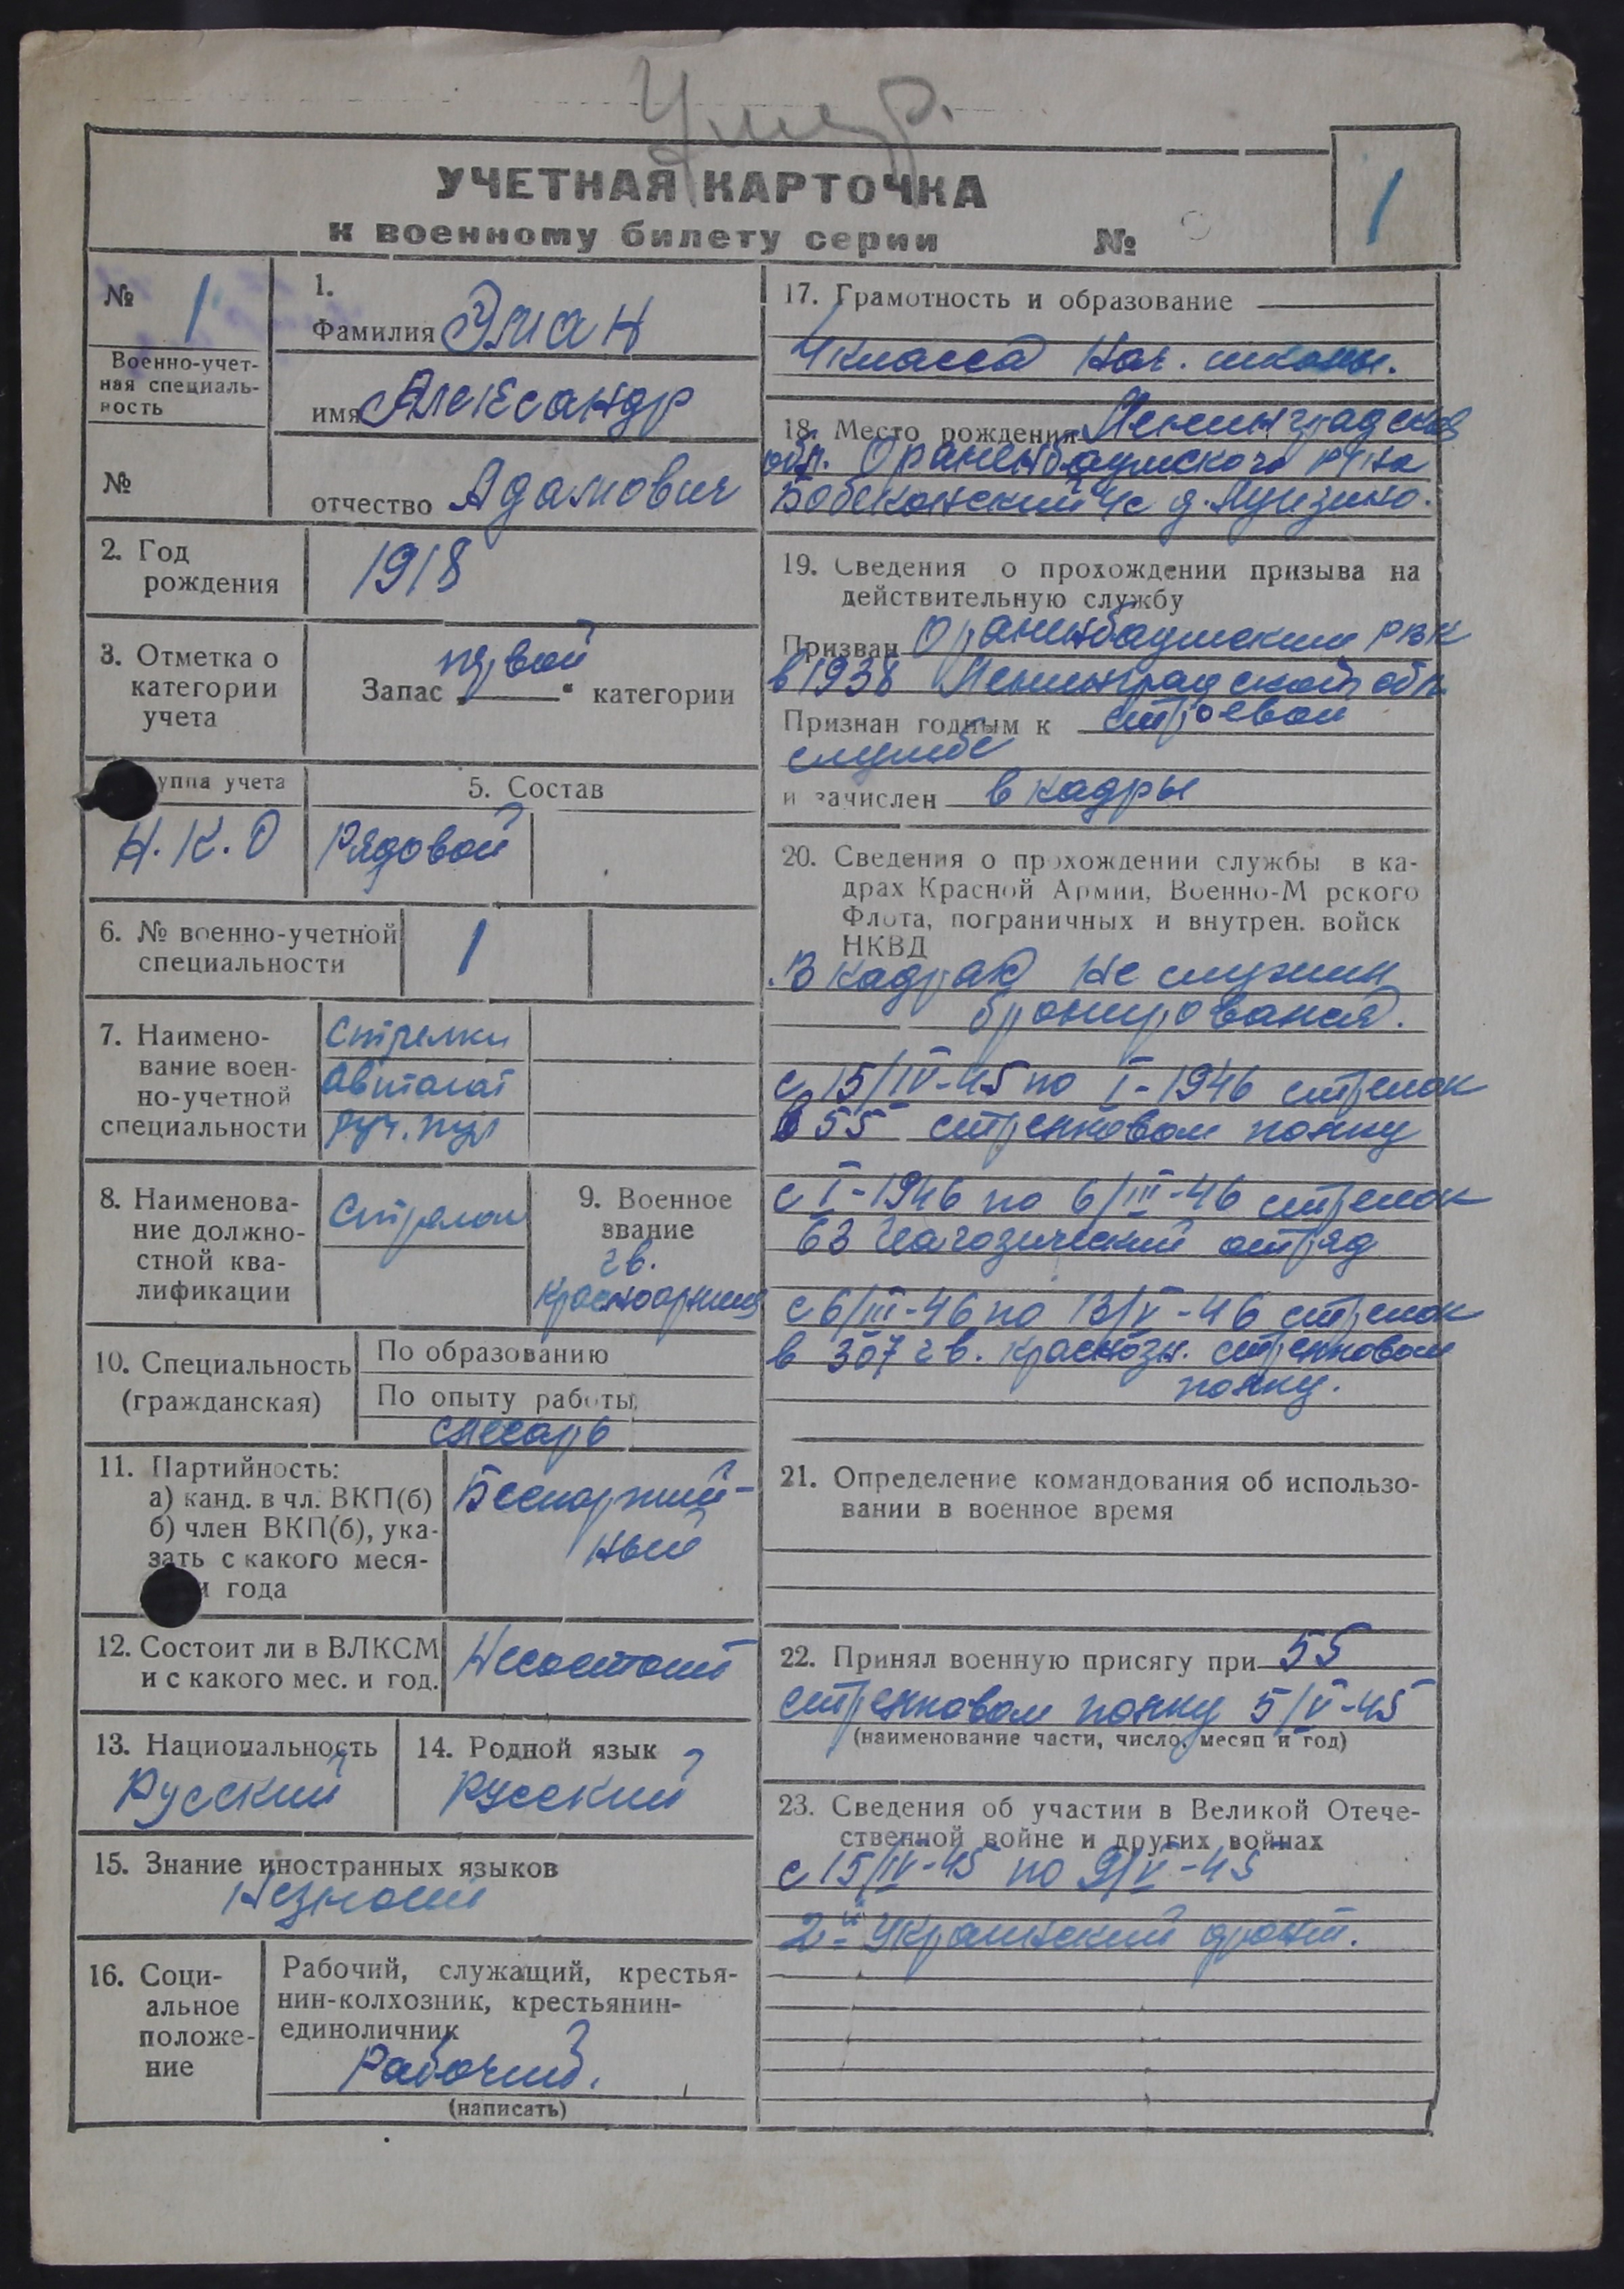 Умер.
УЧЕТНАЯ КАРТОЧКА
к военному билету серии №
1
№ 1
Военно-учет-
ная специаль-
ность
№
1.
Фамилия Элиан
имя Александр
отчество Адамович
2. Год
рождения
1918
3. Отметка о
категории
учета
Запас первой категории
уппа учета
Н.К.О
5. Состав
Рядовой
6. № военно-учетной
специальности
1
7. Наимено-
вание воен-
но-учетной
специальности
Стрелки
автомат
руч. пул
8. Наименова-
ние должно-
стной ква-
лификации
Стрелок
9. Военное
звание
гв.
красноармеец
10. Специальность
(гражданская)
По образованию
По опыту работы
слесарь
11. Партийность:
а) канд. в чл. ВКП(б)
б) член ВКП(б), ука-
зать с какого меся-
и года
Беспартий-
ный
12. Состоит ли в ВЛКСМ
и с какого мес. и год.
Несостоит
13. Национальность
Русский
14. Родной язык
Русский
15. Знание иностранных языков
Незнает
16. Соци-
альное
положе-
ние
Рабочий, служащий, крестья-
нин-колхозник, крестьянин-
единоличник
Рабочий.
(написать)
17. Грамотность и образование
4 класса нач. школы.
18. Место рождения Ленинградская
обл. Ораненбаумского р-на
с/с д.
19. Сведения о прохождении призыва на
действительную службу
Призван Ораненбаумским РВК
в 1938 Ленинградской обл.
Признан годным к строевой
службе
и зачислен в кадры
20. Сведения о прохождении службы в ка-
драх Красной Армии, Военно-М рского
Флота, пограничных и внутрен. войск
НКВД
В кадрах не служил
бронировался.
с 15/IV-45 по I-1946 стрелок
в 55 стрелковом полку
с I-1946 по 6/III-46 стрелок
63 отряд
с 6/III-46 по 13/V-46 стрелок
в 307 гв. краснозн. стрелковом
полку.
21. Определение командования об использо-
вании в военное время
22. Принял военную присягу при 55
стрелковом полку 5/V-45
(наименование части, число, месяц и год)
23. Сведения об участии в Великой Отече-
ственной войне и других войнах
с 15/IV-45 по 9/V-45
2й Украинский фронт.